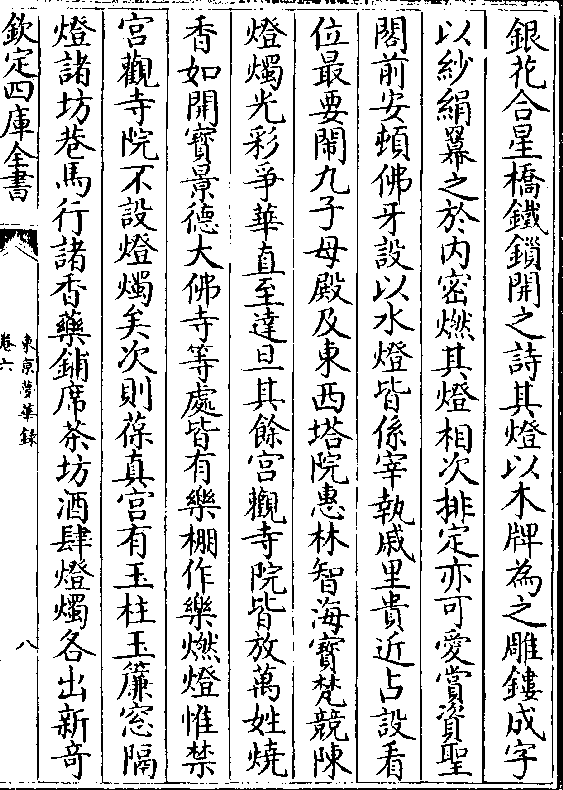 銀花合星橋鐵鎖開之詩其燈以木牌為之雕鏤成字
以紗絹羃之於内密燃其燈相次排定亦可愛賞資聖
閣前安頓佛牙設以水燈皆係宰執戚里貴近占設看
位最要閙九子母殿及東西塔院惠林智海寶梵競陳
燈燭光彩爭華直至達旦其餘宫觀寺院皆放萬姓燒
香如開寳景德大佛寺等處皆有樂棚作樂燃燈惟禁
宫觀寺院不設燈燭矣次則葆真宫有玉柱玉簾窓隔
燈諸坊巷馬行諸香藥鋪席茶坊酒肆燈燭各出新竒
欽定四庫全書
東京夢華錄
卷六
八